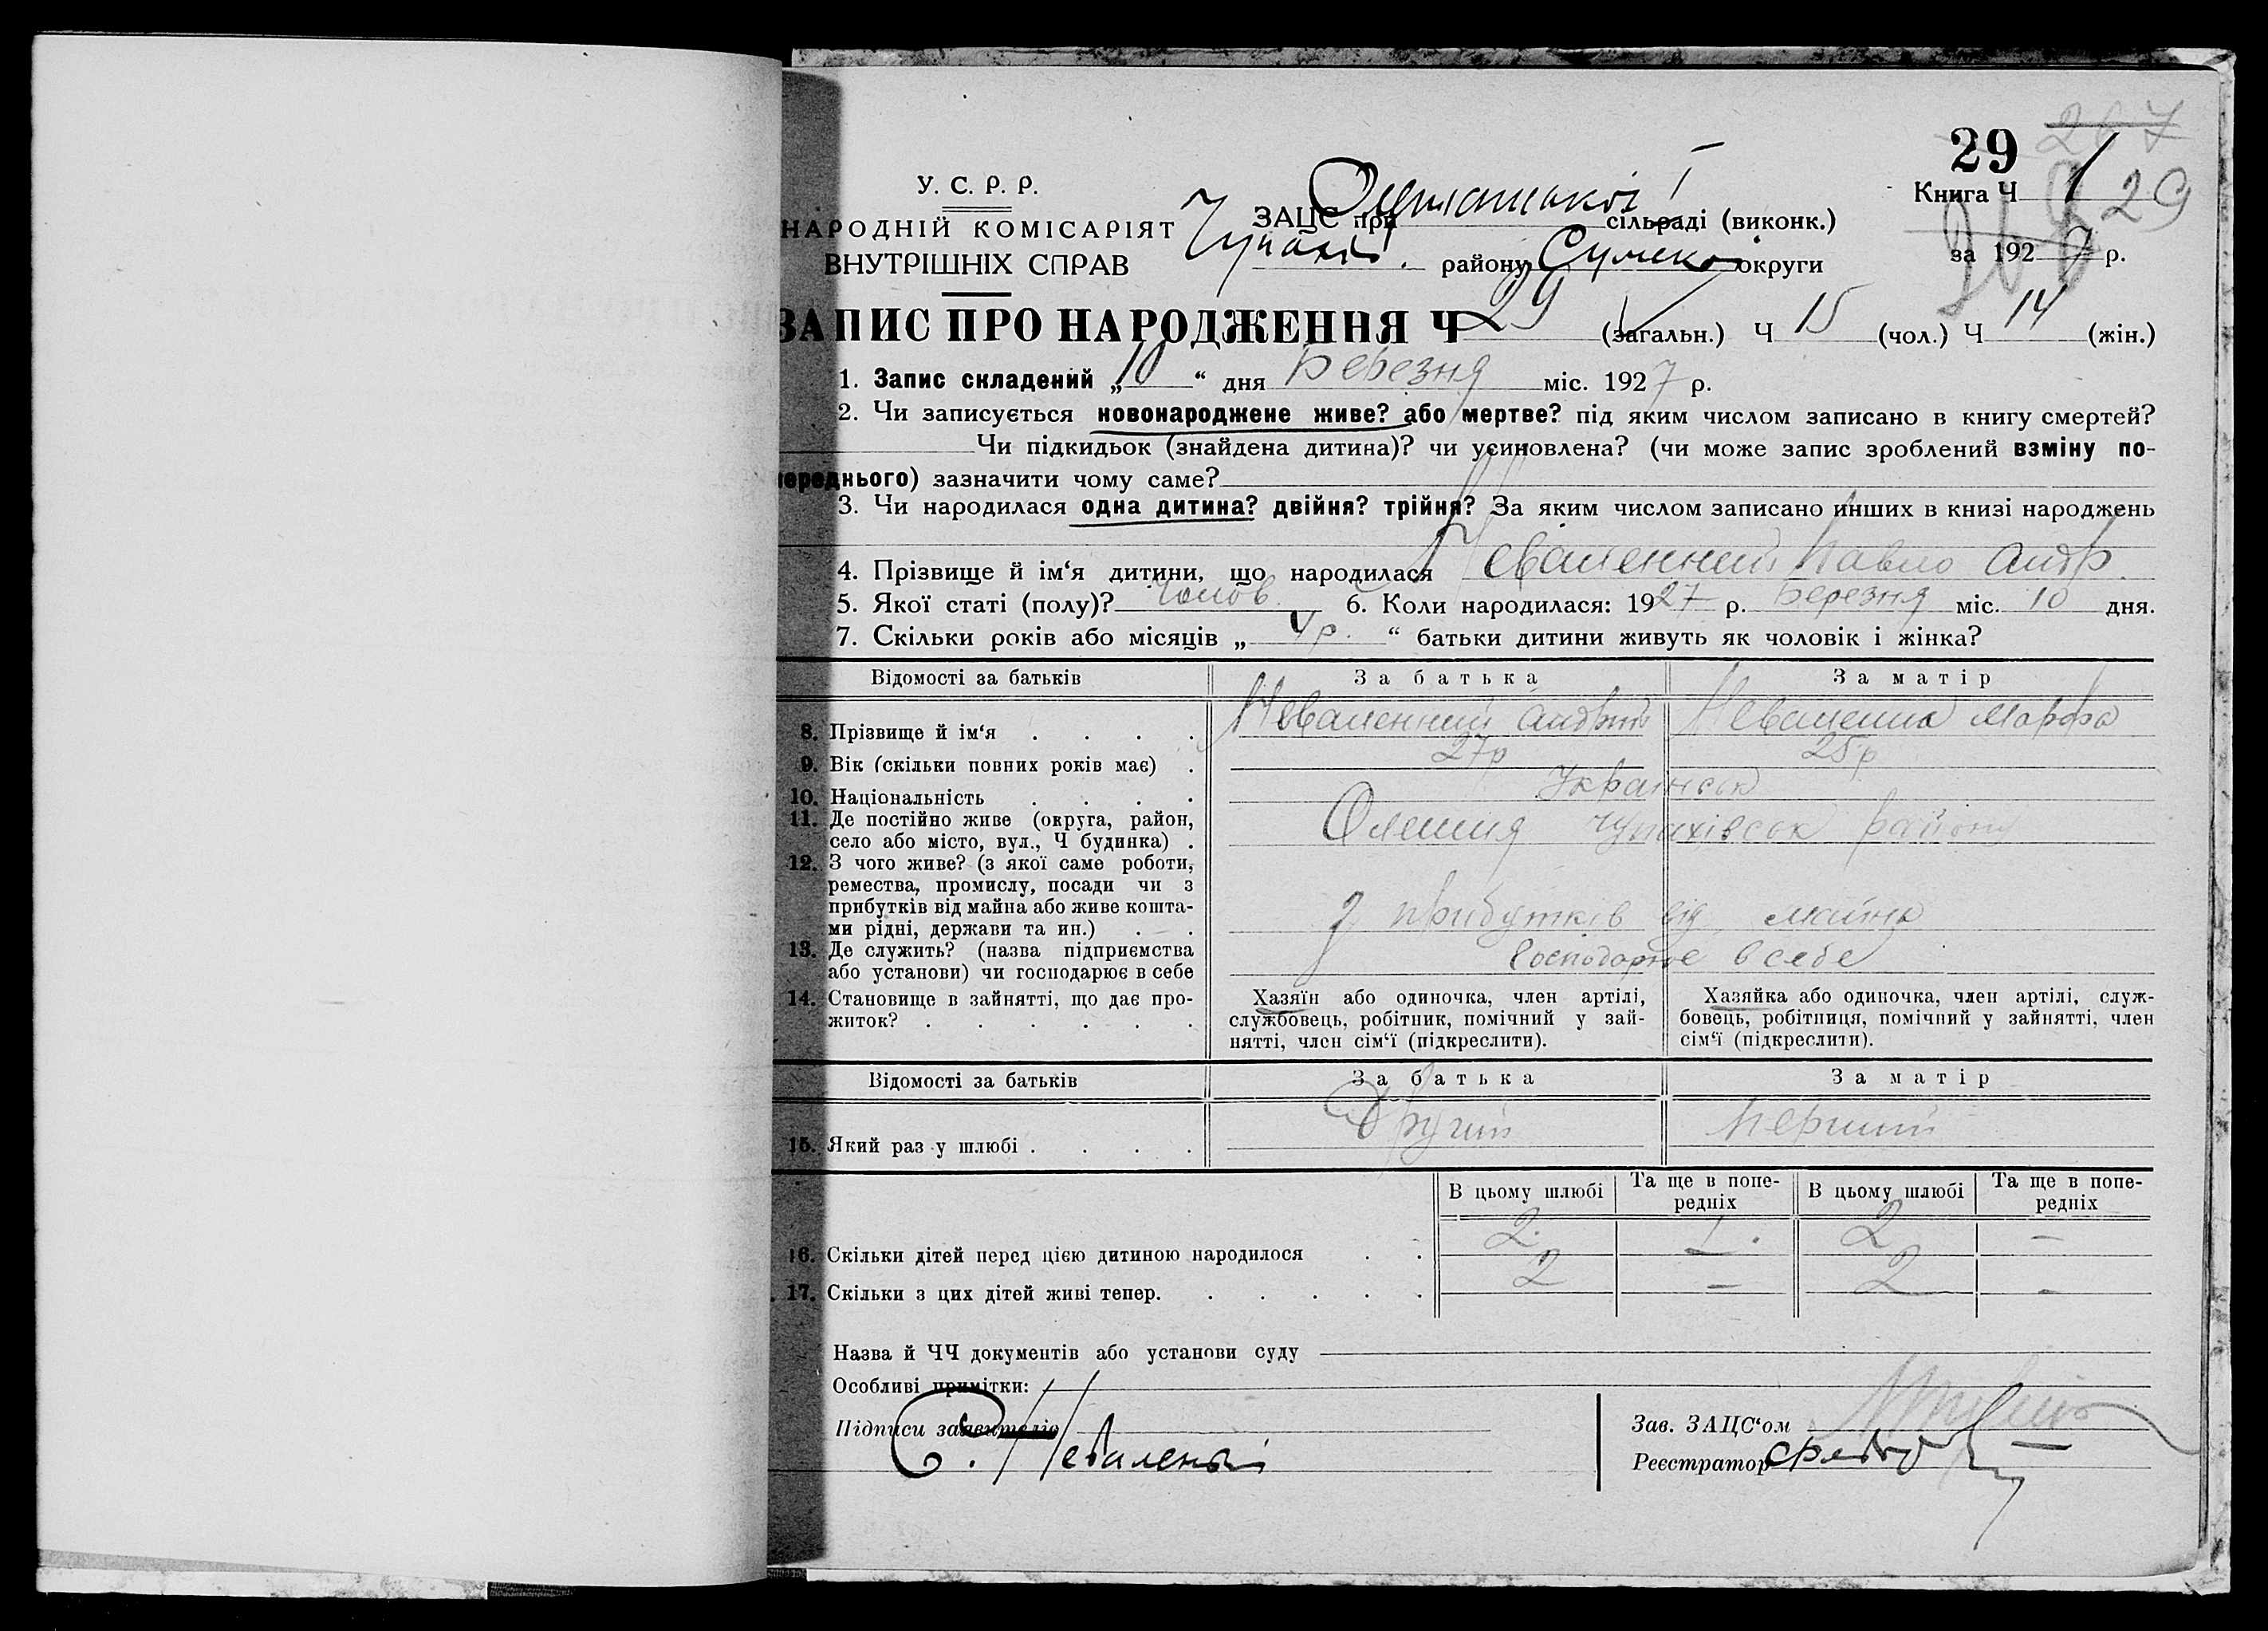 29 267
У. С. Р. Р.
НАРОДНІЙ КОМІСАРІЯТ
ВНУТРІШНІХ СПРАВ
Книга Ч 1 29
ЗАЦС при сільраді (виконк.)
району Сумської округи
за 1927 р.
ЗАПИС ПРО НАРОДЖЕННЯ Ч 29 (загальн.) Ч 15 (чол.) Ч 14 (жін.)
1. Запис складений „10“ дня Березня міс. 1927 р.
2. Чи записується новонароджене живе? або мертве? під яким числом записано в книгу смертей?
Чи підкидьок (знайдена дитина)? чи усиновлена? (чи може запис зроблений взміну по-
переднього) зазначити чому саме?
3. Чи народилася одна дитина? двійня? трійня? За яким числом записано инших в книзі народжень
4. Прізвище й ім‘я дитини, що народилася Неваленний Павло Андр.
5. Якої статі (полу)? Чолов 6. Коли народилася: 1927 р. Березня міс. 10 дня.
7. Скільки років або місяців „4 р.“ батьки дитини живуть як чоловік і жінка?
Відомості за батьків За батька За матір
8. Прізвище й ім‘я . . . . Неваленний Андрій Неваленна Марфа
9. Вік (скільки повних років має) . 27р 25р
10. Національність . . . . Українськ
11. Де постійно живе (округа, район,
село або місто, вул., Ч будинка) . Олешня Чупахівськ району
12. З чого живе? (з якої саме роботи,
ремества, промислу, посади чи з
прибутків від майна або живе кошта-
ми рідні, держави та ин.) . . З прибутків від майна
13. Де служить? (назва підприємства
або установи) чи господарює в себе Господарює в себе
14. Становище в зайнятті, що дає про-
житок? . . . . . .
Хазяїн або одиночка, член артілі,
службовець, робітник, помічний у зай-
нятті, член сім‘ї (підкреслити).
Хазяйка або одиночка, член артілі, служ-
бовець, робітниця, помічний у зайнятті, член
сім‘ї (підкреслити).
Відомості за батьків За батька За матір
15. Який раз у шлюбі . . . . Другий Перший
В цьому шлюбі Та ще в попе-
редніх В цьому шлюбі Та ще в попе-
редніх
16. Скільки дітей перед цією дитиною народилося . . 2 1 2 —
17. Скільки з цих дітей живі тепер. . . . . . 2 — 2 —
Назва й ЧЧ документів або установи суду
Особливі примітки:
Підписи заявителів
Зав. ЗАЦС‘ом
Реєстратор